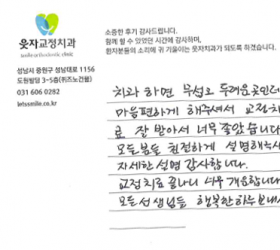 웃자교정치과
smile orthodontic clinic
성남시 중원구 성남대로 1156
도원빌딩 3~5층(퀴즈노건물)
031 606 0282
letssmile.co.kr
소중한 후기 감사드립니다.
함께 할 수 있었던 시간에 감사하며,
환자분들의 소리에 귀 기울이는 웃자치과가 되도록 하겠습니다.
치과 하면 무섭고 두려운곳인데
마음편하게 해주셔서 교정치
료 잘 받아서 너무 좋았습니다
모든분들 친절하게 설명해주시
자세한 설명 감사합니다.
교정치료 끝나니 너무 개운합니다
모든 선생님들 행복한하루보내